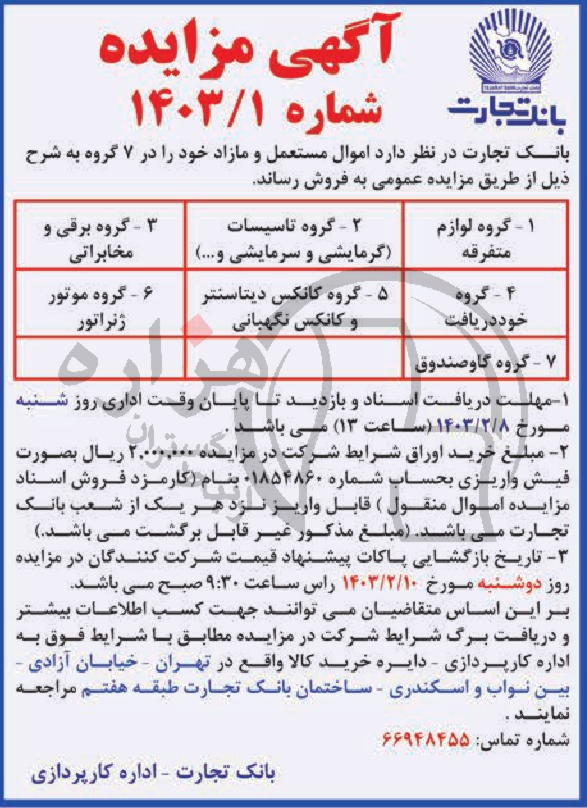 آگهی مزایده
شماره ۱۴۰۳/۱
بانک تجارت
بانک تجارت در نظر دارد اموال مستعمل و مازاد خود را در ۷ گروه به شرح
ذیل از طریق مزایده عمومی به فروش رساند.
۱ - گروه لوازم
متفرقه
۲ - گروه تاسیسات
(گرمایشی و سرمایشی و...)
۳ - گروه برقی و
مخابراتی
۴ - گروه
خوددریافت
۵ - گروه کانکس دیتاسنتر
و کانکس نگهبانی
۶ - گروه موتور
ژنراتور
۷ - گروه گاوصندوق
۱-مهلت دریافت اسناد و بازدید تا پایان وقت اداری روز شنبه
مورخ ۱۴۰۳/۲/۸ (ساعت ۱۳) می باشد .
۲- مبلغ خرید اوراق شرایط شرکت در مزایده ۲.۰۰۰.۰۰۰ ریال بصورت
فیش واریزی بحساب شماره ۰۱۸۵۴۸۶۰ بنام (کارمزد فروش اسناد
مزایده اموال منقول ) قابل واریز نزد هر یک از شعب بانک
تجارت می باشد. (مبلغ مذکور غیر قابل برگشت می باشد.)
۳- تاریخ بازگشایی پاکات پیشنهاد قیمت شرکت کنندگان در مزایده
روز دوشنبه مورخ ۱۴۰۳/۲/۱۰ راس ساعت ۹:۳۰ صبح می باشد.
بر این اساس متقاضیان می توانند جهت کسب اطلاعات بیشتر
و دریافت برگ شرایط شرکت در مزایده مطابق با شرایط فوق به
اداره کارپردازی - دایره خرید کالا واقع در تهران - خیابان آزادی -
بین نواب و اسکندری - ساختمان بانک تجارت طبقه هفتم مراجعه
نمایند .
شماره تماس: ۶۶۹۴۸۴۵۵
بانک تجارت - اداره کارپردازی
هزاره